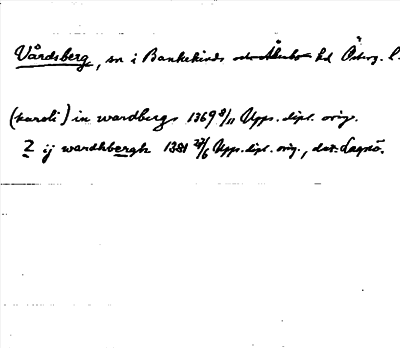 Vårdsberg, sn i Bankekinds o. Åkerbo hd Österg. l.
(curoli) in wardbergs 1369 8/11 Upps. dipl. orig.
2 ij wardhbergh 1381 24/6 Upps. dipl. orig., dat. Lagnö.